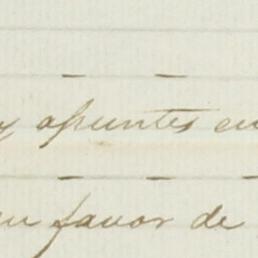 y apuntes en
en favor de